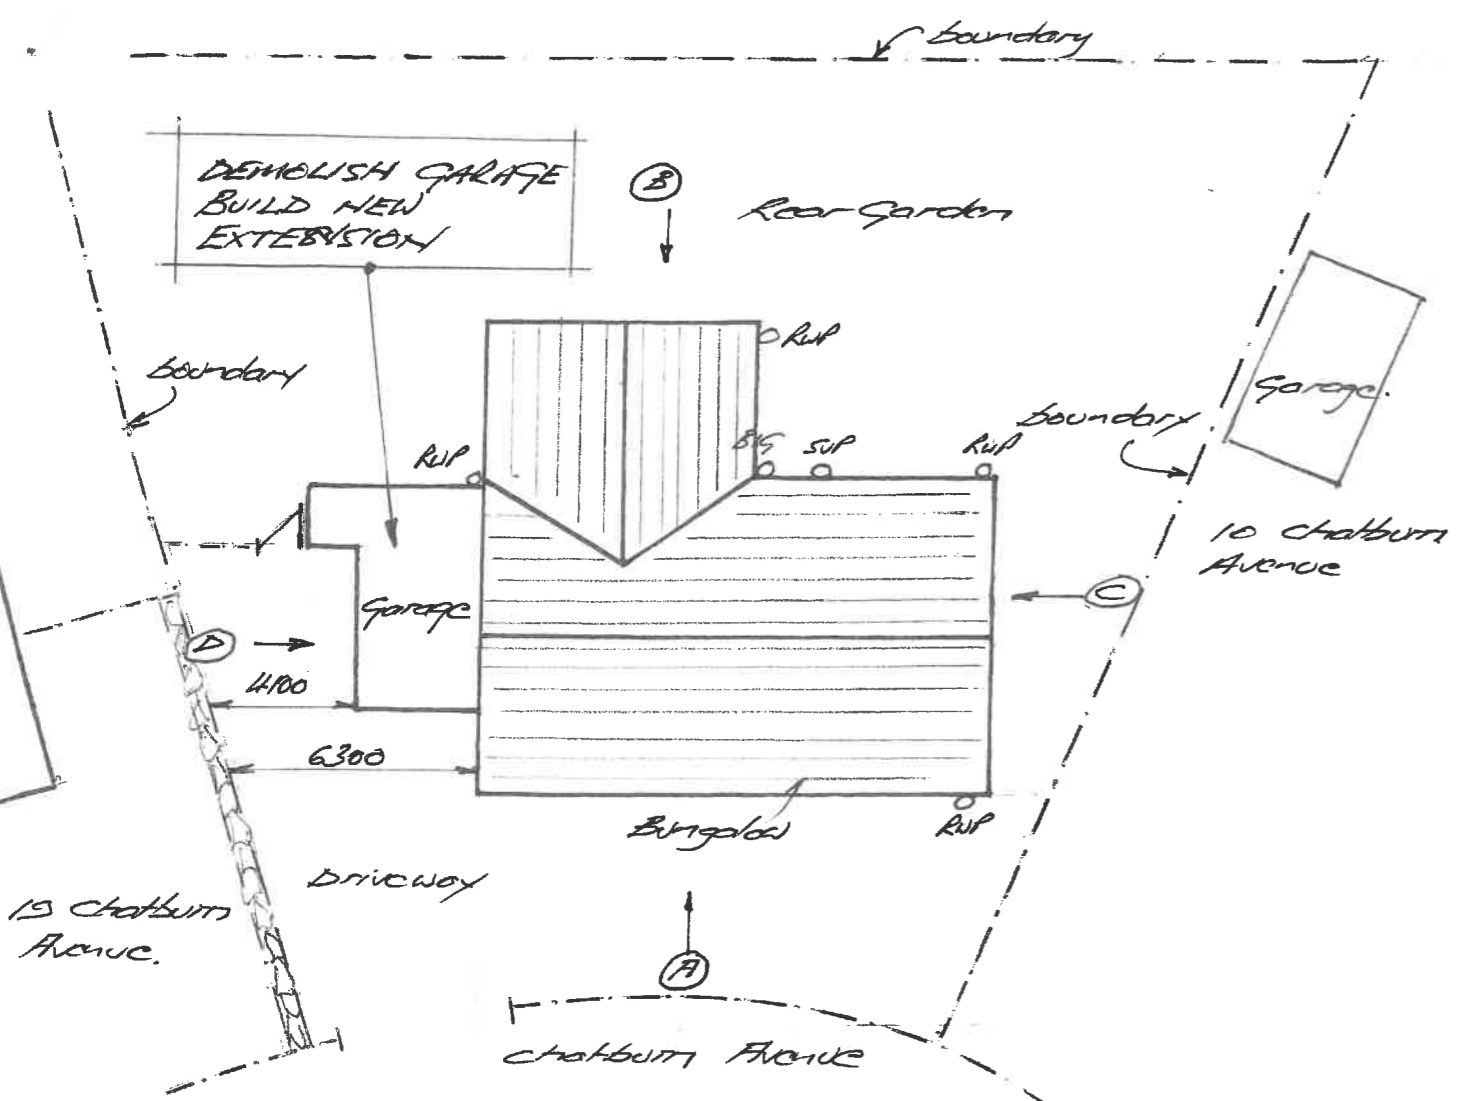 boundary
DEMOLISH GARAGE
BUILD NEW
EXTENSION
B
Rear Garden
RWP
boundary
Garage.
boundary
RWP
BIG
SVP
RWP
10 Chatburn
Avenue
C
Garage
D
4100
6300
Bungalow
RWP
Driveway
19 Chatburn
Avenue.
A
Chatburn Avenue